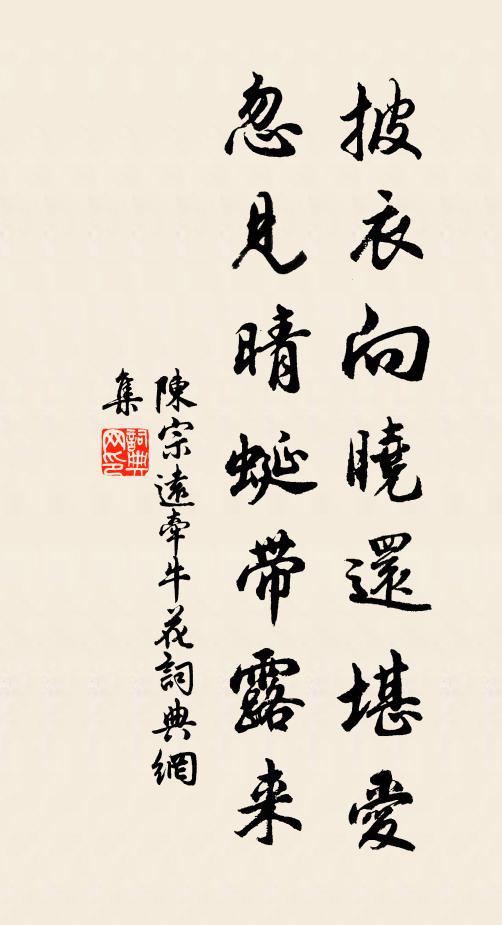 披衣向曉還堪愛
忽見晴蜒带露来
陳宗遠牽牛花詞典網
集
詞典网印